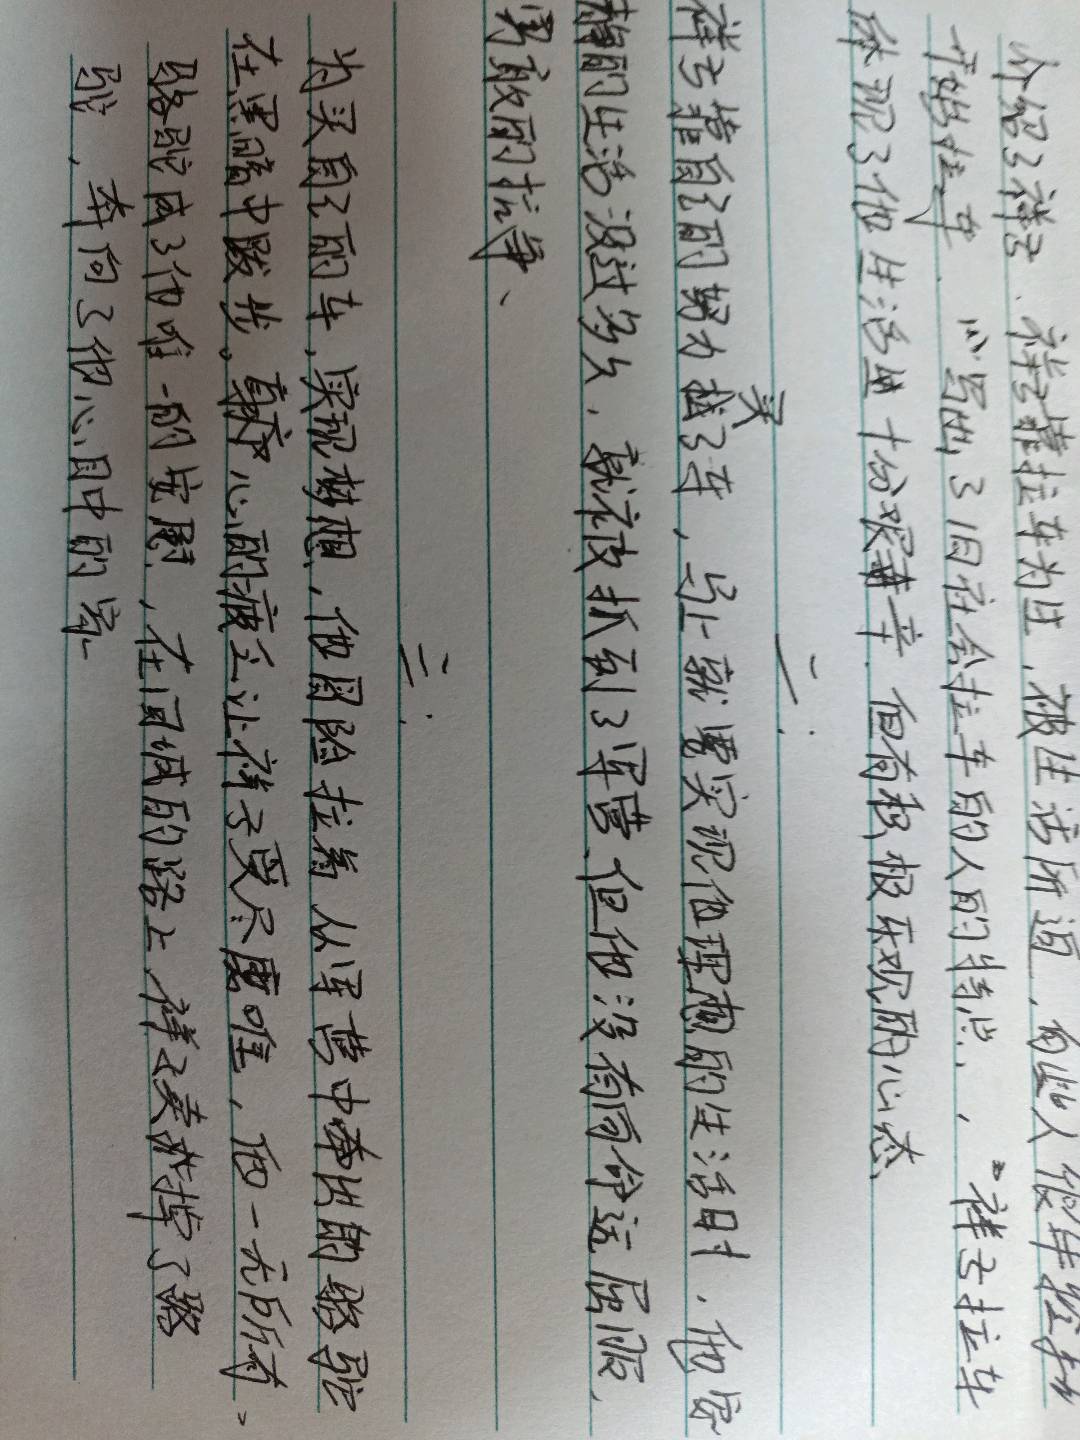 介绍了祥子、祥子靠拉车为生，被生活所迫，有些人很年轻就
开始拉车．"写出了旧社会拉车的人的特点，"祥子拉车
体现了他生活里十份艰辛，但有积极乐观的心态
二：
祥子靠自己的努力买了车，马上就要实现他理想的生活时．他安
稳的生活没过多久，就被抓到了军营、但他没有向命运屈服，
勇敢的抗争、
三：
为买自己的车，实现梦想，他冒险拉着从军营中牵出的骆驼
在黑暗中跋步。身心的疲立让祥子受尽磨难，他一无所有。
骆驼成了他唯一的安慰，在回城的路上祥子卖掉了骆
驼，奔向了他心目中的家